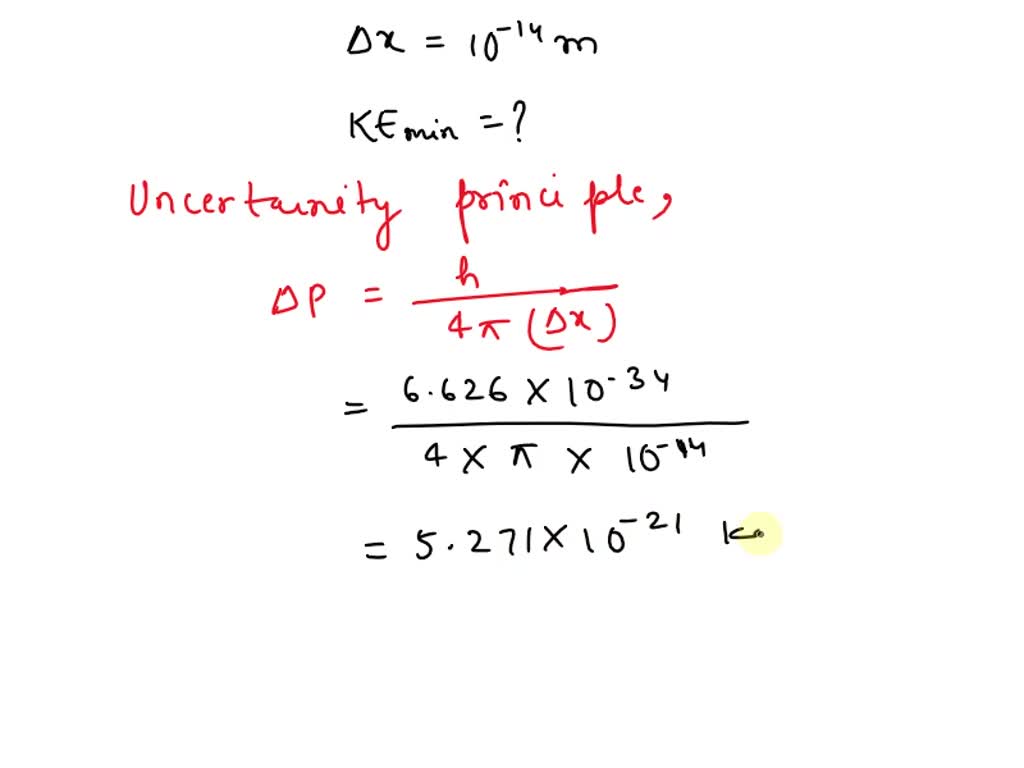 Δx = 10⁻¹⁴ m
KEmin = ?
Uncertainity principle,
ΔP = h / 4π (Δx)
= 6.626 × 10⁻³⁴ / 4 × π × 10⁻¹⁴
= 5.271 × 10⁻²¹